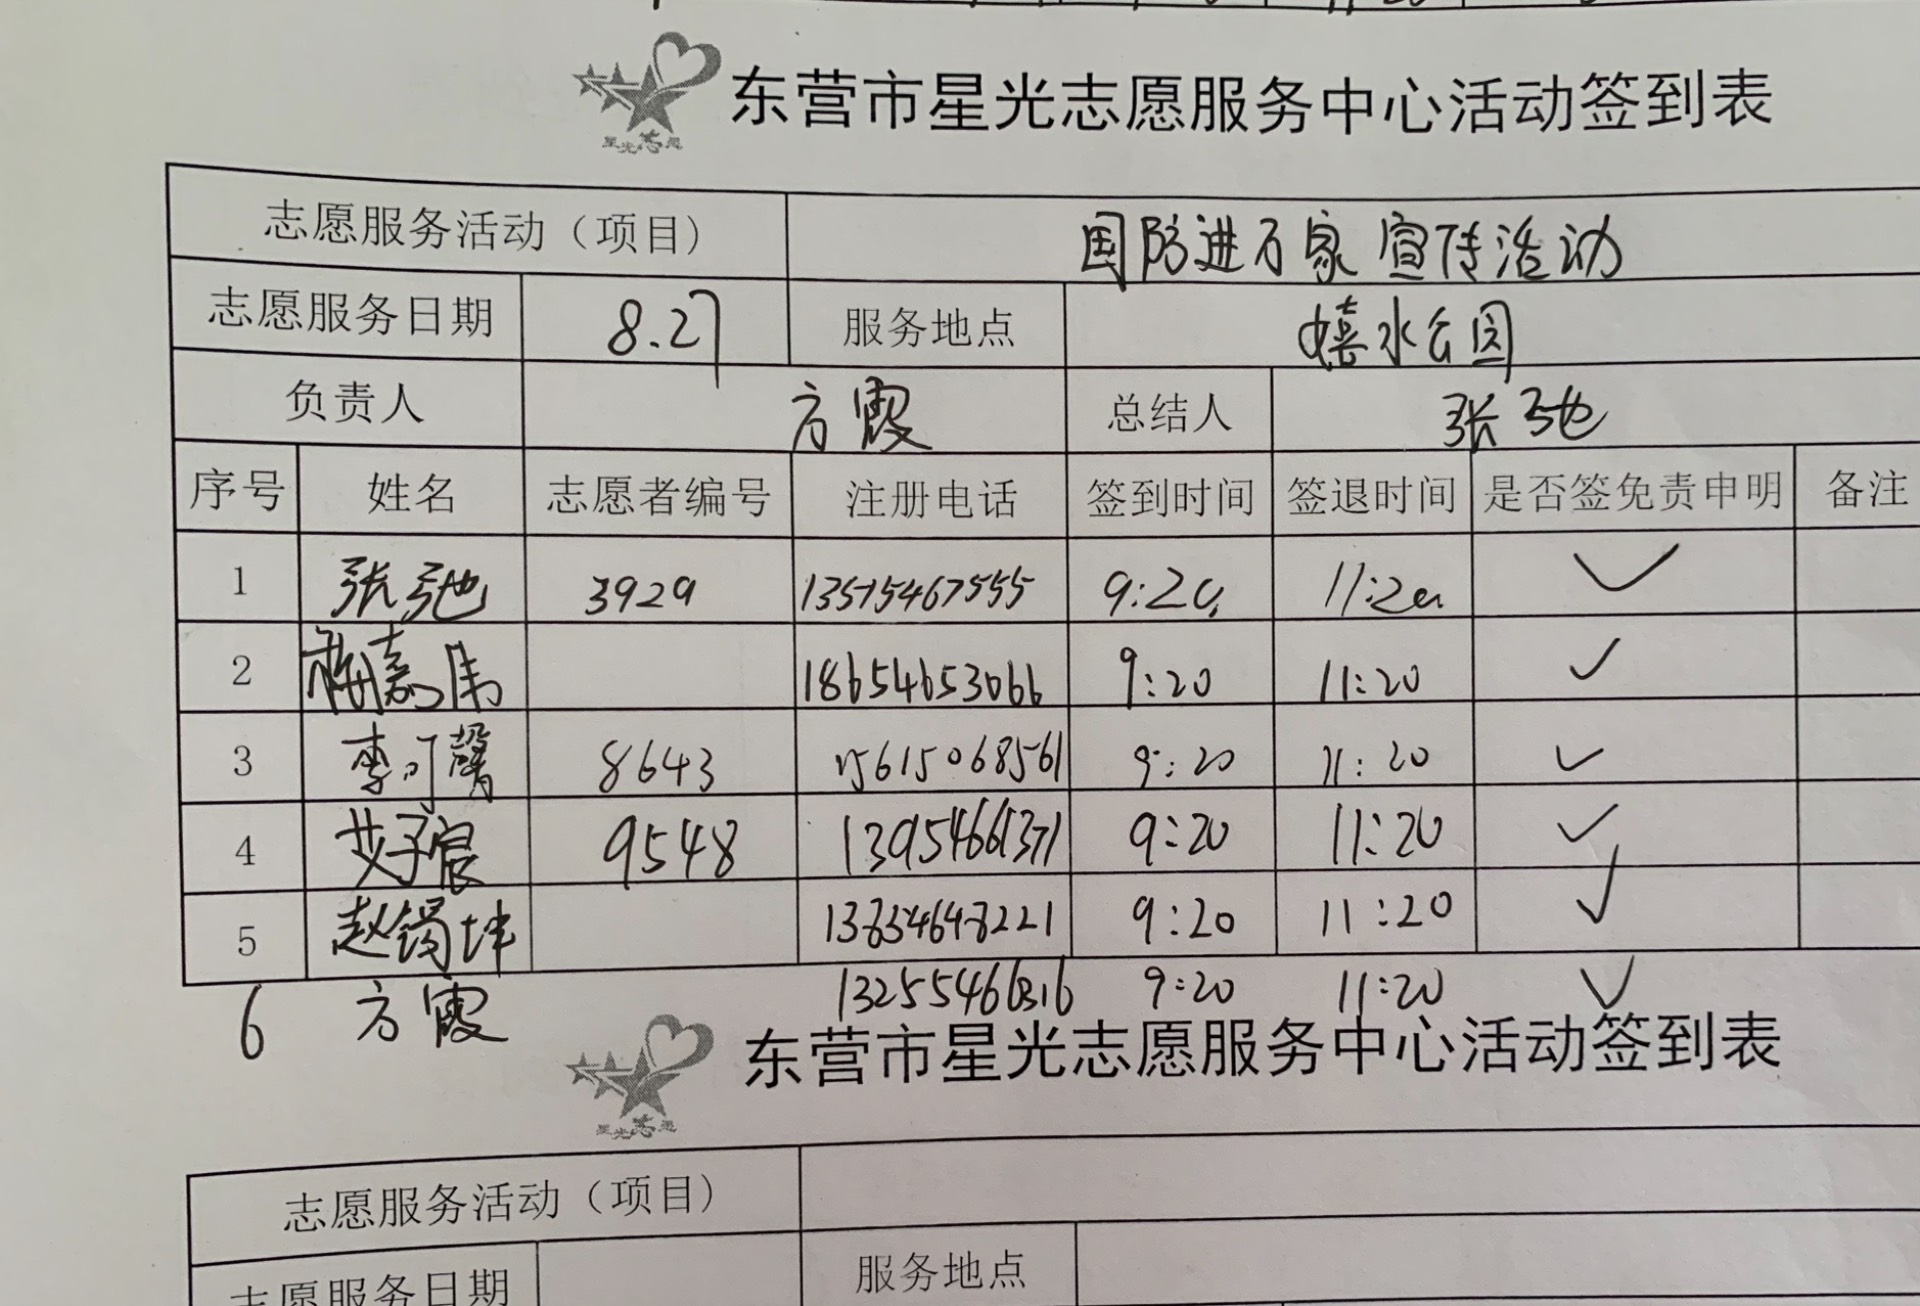 东营市星光志愿服务中心活动签到表
星光志愿
志愿服务活动（项目） 国防进万家宣传活动
志愿服务日期 8.27 服务地点 嬉水公园
负责人 方霞 总结人 张弛
序号 姓名 志愿者编号 注册电话 签到时间 签退时间 是否签免责申明 备注
1 张弛 3929 13575467555 9:20 11:20 ✓
2 18654653066 9:20 11:20 ✓
3 李可馨 8643 15615068561 9:20 11:20 ✓
4 艾子宸 9548 13954661371 9:20 11:20 ✓
5 赵锡坤 9:20 11:20 ✓
6 方霞 9:20 11:20 ✓
东营市星光志愿服务中心活动签到表
星光志愿
志愿服务活动（项目）
志愿服务日期 服务地点